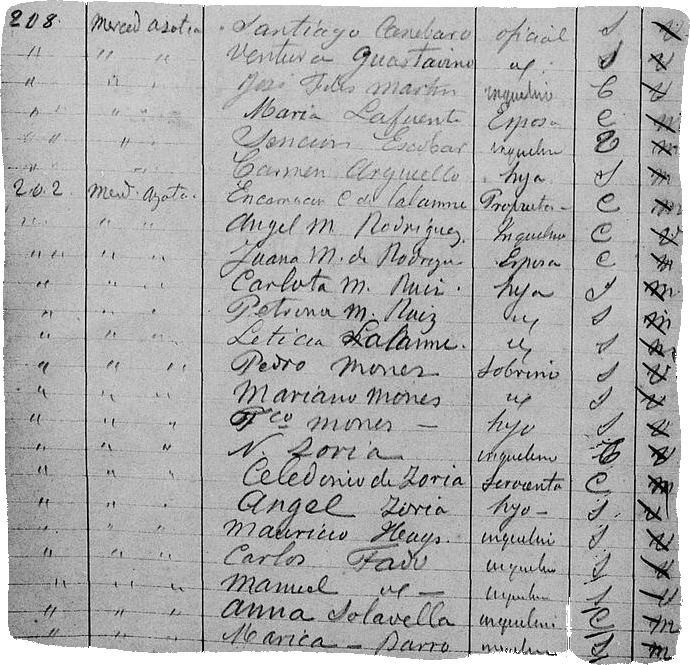 208. Merced azotea Santiago Canebaro oficial S V
" " " Ventura Guastavino id. S V
" " " José Felis Martin inquilino C V
" " " Maria Lafuente Esposa C m
" " " Escobar inquilino m
" " " Carmen Arguello hija S m
202 Merd. Azotea. Encarnacion C. de Lalanne Propieta- C m
" " " Angel M. Rodriguez Inquilino C V
" " " Juana M. de Rodrigu Esposa C m
" " " Carlota M. Ruiz. hija S m
" " " Petrona M. Ruiz id S m
" " " Leticia Lalanne. id S m
" " " Pedro Mones Sobrino S V
" " " Mariano Mones id S V
" " " Fco Mones - hijo S V
" " " N. Zoria inquilino C V
" " " Celedonio de Zoria Servienta C m
" " " Angel Zoria hijo - S V
" " " Mauricio Heays inquilino S V
" " " Carlos inquilino S V
" " " Manuel id - inquilino S V
" " " Anna Solavella inquilini C m
" " " Marica - Parro inquilino S m